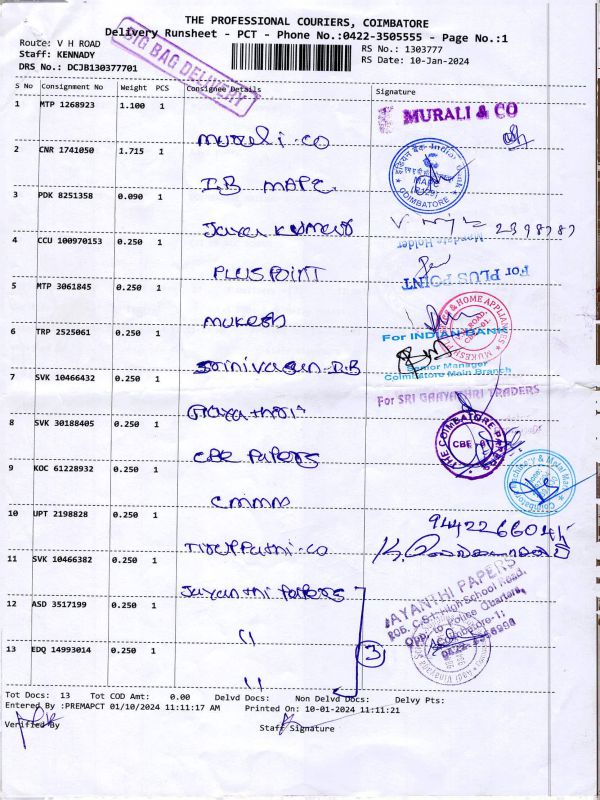 THE PROFESSIONAL COURIERS, COIMBATORE
Delivery Runsheet - PCT - Phone No.:0422-3505555 - Page No.:1
Route: V H ROAD
RS No.: 1303777
Staff: KENNADY
RS Date: 10-Jan-2024
DRS No.: DCJB130377701
BIG BAG DELIVERY
S No Consignment No Weight PCS Consignee Details Signature
1 MTP 1268923 1.100 1 Murali.co MURALI & CO
2 CNR 1741050 1.715 1 I.B
COIMBATORE
3 PDK 8251358 0.090 1 Jaya 2398787
Mandate Holder
4 CCU 100970153 0.250 1 PLUS POINT For PLUS POINT
5 MTP 3061845 0.250 1 mukesh
For INDIAN BANK
6 TRP 2525061 0.250 1 Srinivasan I.B
Senior Manager
Coimbatore Main Branch
7 SVK 10466432 0.250 1 For SRI GAAYATHRI TRADERS
8 SVK 30188405 0.250 1 CBE PAPERS THE COIMBATORE PAPERS CBE
9 KOC 61228932 0.250 1 CMMM
10 UPT 2198828 0.250 1 Tiruppathi-co
11 SVK 10466382 0.250 1 Jayanthi Papers
JAYANTHI PAPERS
805, C.S.I. High School Road,
Opp. to Police Quarters,
12 ASD 3517199 0.250 1 "
Coimbatore-1.
13 EDQ 14993014 0.250 1 "
3
Tot Docs: 13 Tot COD Amt: 0.00 Delvd Docs: Non Delvd Docs: Delvy Pts:
Entered By :PREMAPCT 01/10/2024 11:11:17 AM Printed On: 10-01-2024 11:11:21
Verified By Staff Signature